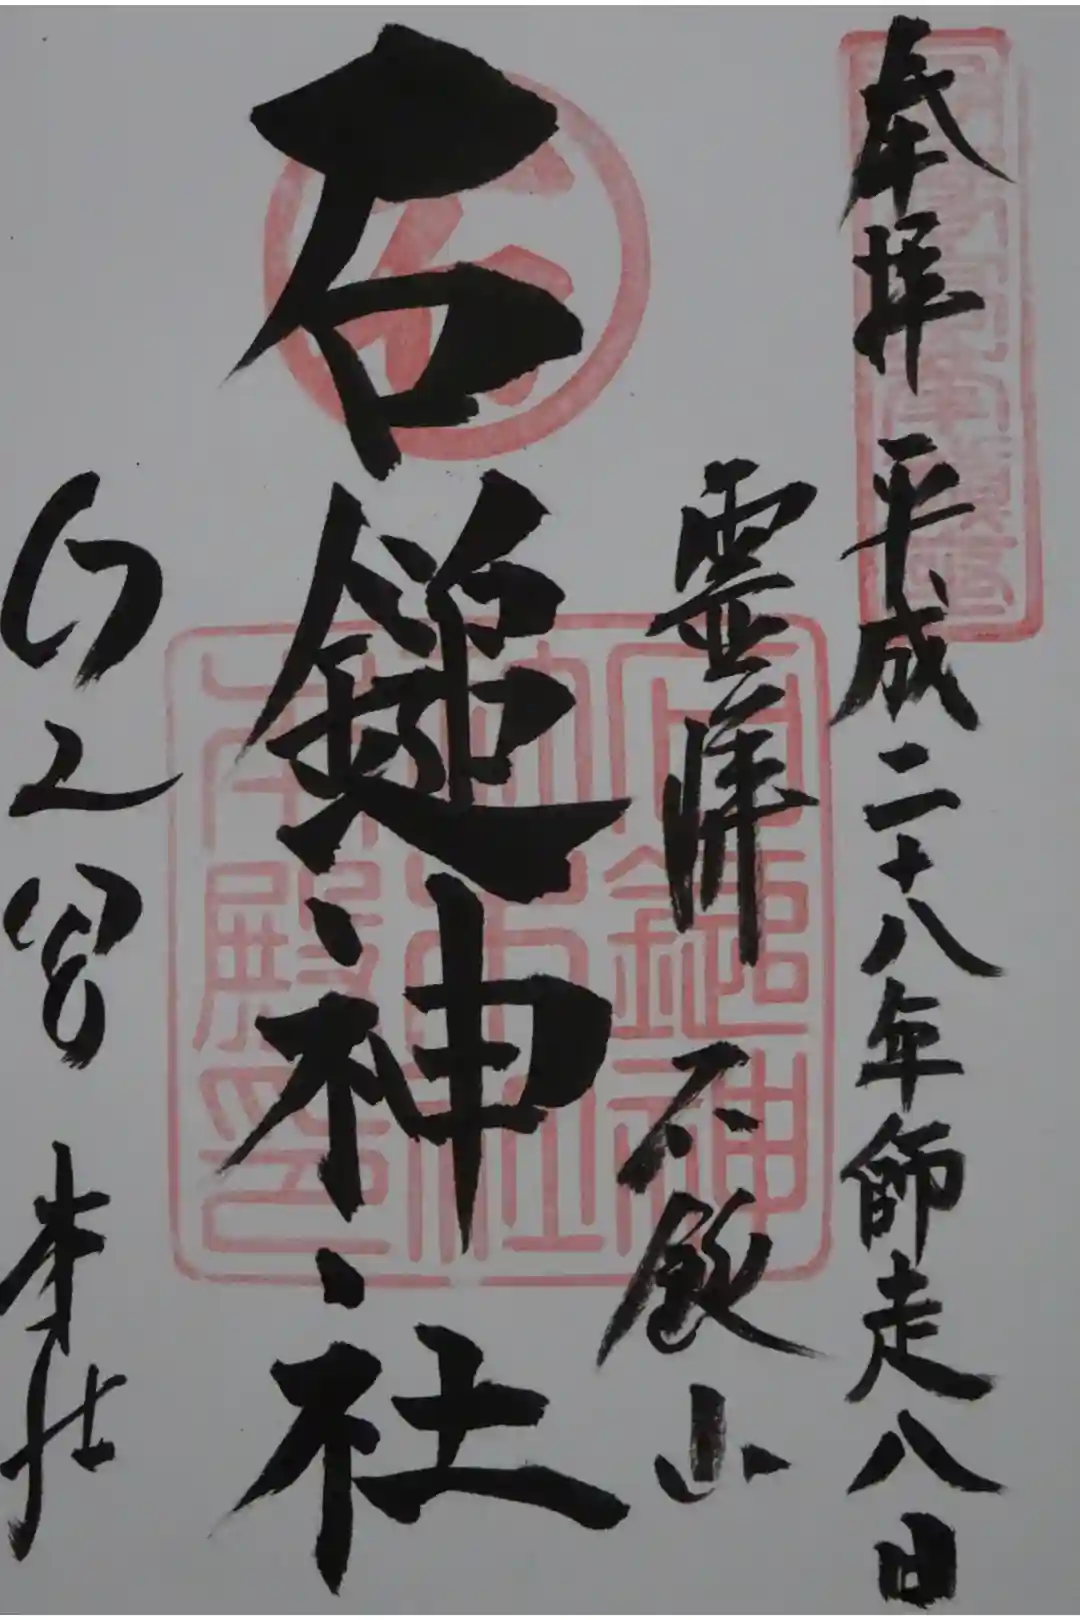 奉拝 平成二十八年師走八日
霊峰 石鎚山
石鎚神社
口之宮 本社
石鎚神社本殿印